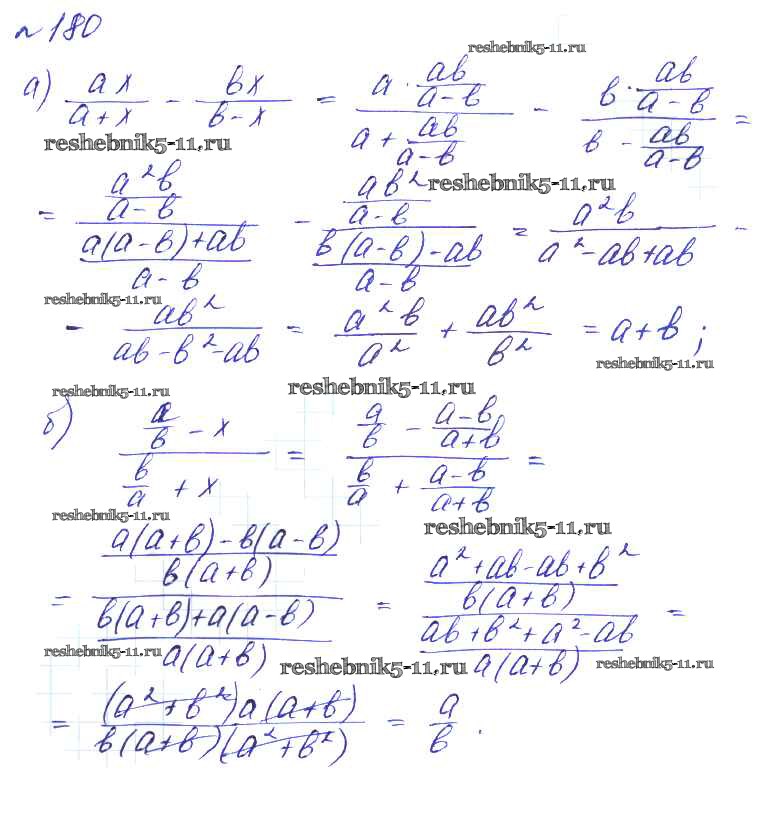 №180
reshebnik5-11.ru
а) \frac{ax}{a+x} - \frac{bx}{b-x} = \frac{a \cdot \frac{ab}{a-b}}{a + \frac{ab}{a-b}} - \frac{b \cdot \frac{ab}{a-b}}{b - \frac{ab}{a-b}} =
reshebnik5-11.ru
reshebnik5-11.ru
= \frac{\frac{a^2b}{a-b}}{\frac{a(a-b)+ab}{a-b}} - \frac{\frac{ab^2}{a-b}}{\frac{b(a-b)-ab}{a-b}} = \frac{a^2b}{a^2-ab+ab} -
reshebnik5-11.ru
- \frac{ab^2}{ab-b^2-ab} = \frac{a^2b}{a^2} + \frac{ab^2}{b^2} = a+b;
reshebnik5-11.ru
reshebnik5-11.ru
reshebnik5-11.ru
б) \frac{\frac{a}{b} - x}{\frac{b}{a} + x} = \frac{\frac{a}{b} - \frac{a-b}{a+b}}{\frac{b}{a} + \frac{a-b}{a+b}} =
reshebnik5-11.ru
reshebnik5-11.ru
= \frac{\frac{a(a+b)-b(a-b)}{b(a+b)}}{\frac{b(a+b)+a(a-b)}{a(a+b)}} = \frac{\frac{a^2+ab-ab+b^2}{b(a+b)}}{\frac{ab+b^2+a^2-ab}{a(a+b)}} =
reshebnik5-11.ru
reshebnik5-11.ru
reshebnik5-11.ru
= \frac{(a^2+b^2)a(a+b)}{b(a+b)(a^2+b^2)} = \frac{a}{b}.